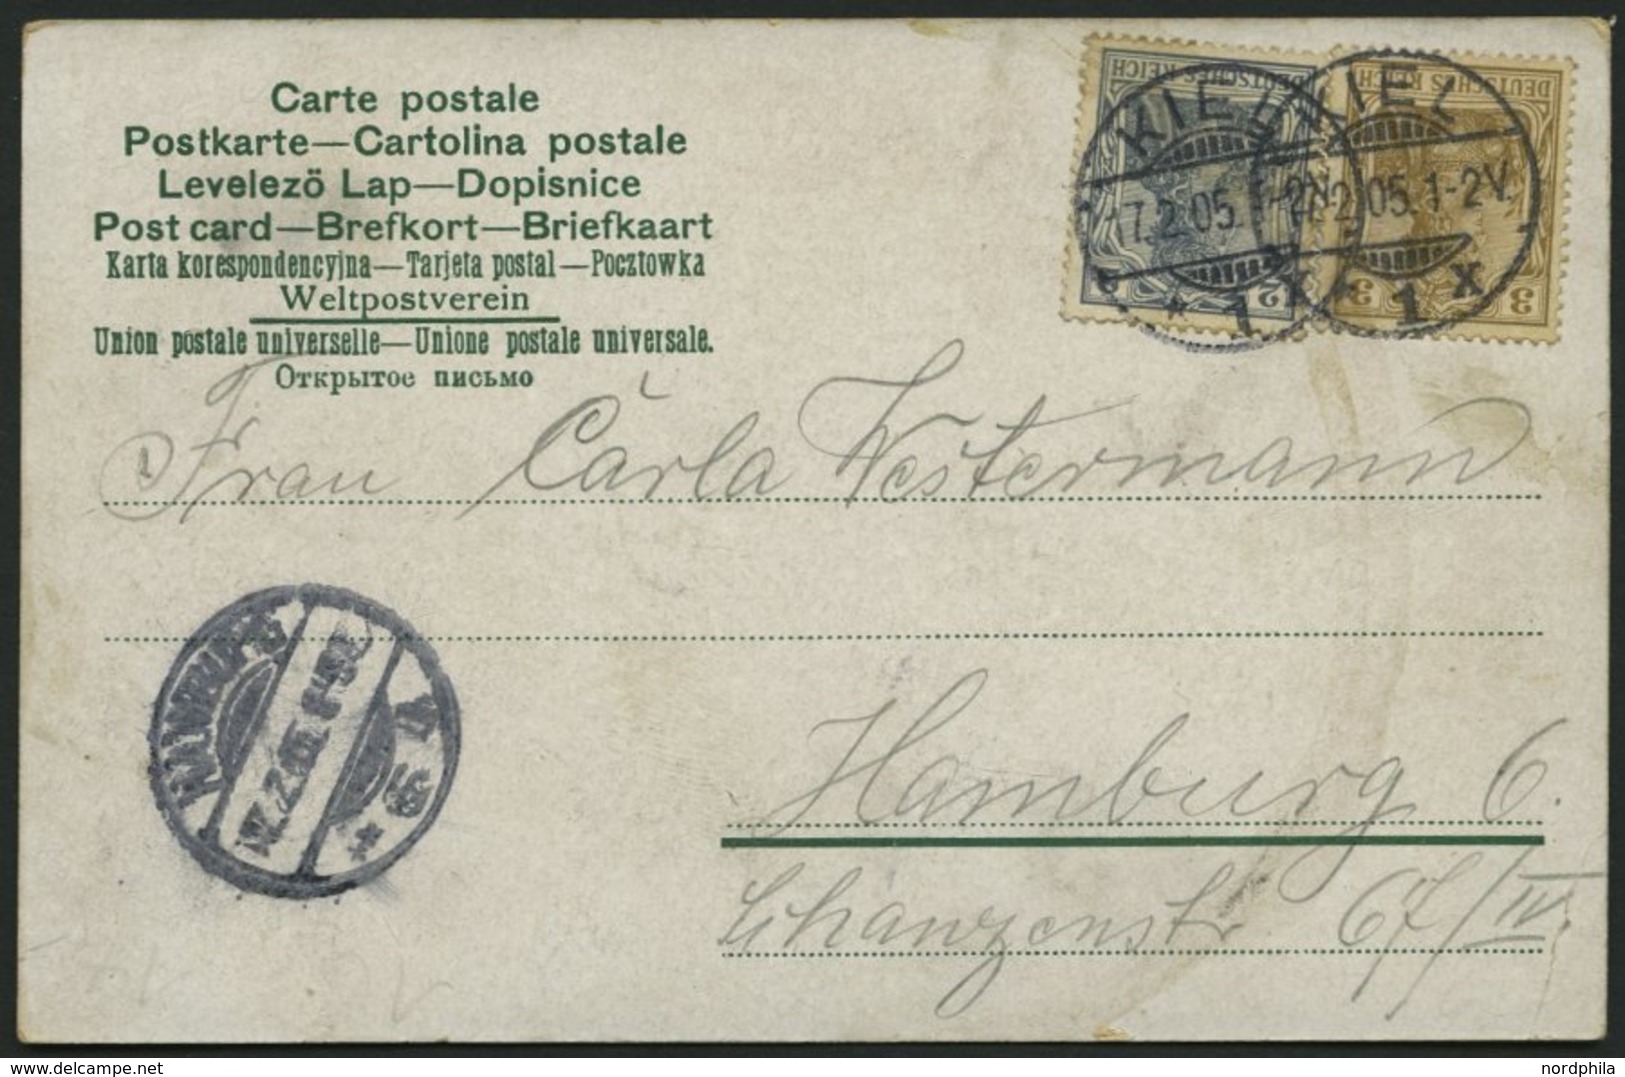 Carte postale
Postkarte—Cartolina postale
Levelező Lap—Dopisnice
Post card—Brefkort—Briefkaart
Karta korespondencyjna—Tarjeta postal—Pocztowka
Weltpostverein
Union postale universelle—Unione postale universale.
Открытое письмо
DEUTSCHES REICH
2
DEUTSCHES REICH
3 3
KIEL
17.2.05. 1-2V.
* 1 x
KIEL
17.2.05. 1-2V.
1 x
Frau Carla Westermann
HAMBURG
17.2.05
Hamburg 6.
Schanzenstr 67/IV.
delcampe.net
nordphila